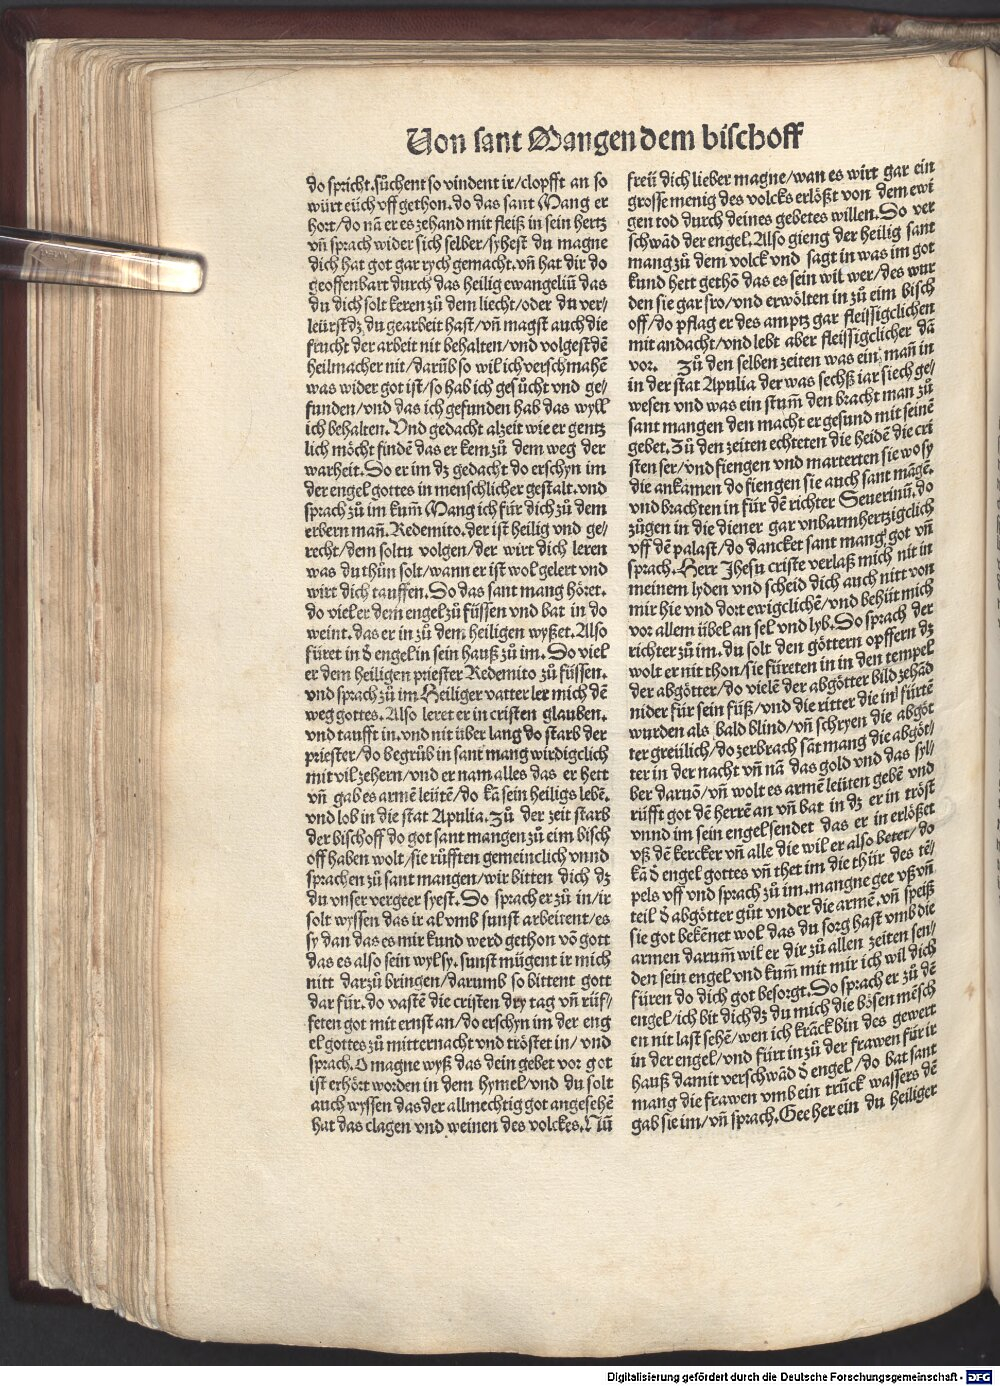 Von sant Mangen dem bischoff
do spricht. sůchent so vindent ir/clopfft an so
würt eüch vff gethon. do das sant Mang er
hort/do nā er es zehand mit fleiß in sein hertz
vñ sprach wider sich selber/syhest du magne
dich hat got gar rych gemacht. vñ hat dir do
geoffenbart durch das heilig ewangeliū das
du dich solt keren zů dem liecht/oder du ver-
leürst dz du gearbeit hast/vñ magst auch die
frucht der arbeit nit behalten/vnd volgest dē
heilmacher nit/darūb so wil ich verschmahē
was wider got ist/so hab ich gesůcht vnd ge-
funden/vnd das ich gefunden hab das wyll
ich behalten. Vnd gedacht alzeit wie er gentz
lich möcht findē das er kem zů dem weg der
warheit. So er im dz gedacht do erschyn im
der engel gottes in menschlicher gestalt. vnd
sprach zů im kum̄ Mang ich für dich zů dem
erbern man̄. Redemito. der ist heilig vnd ge-
recht/dem soltu volgen/der wirt dich leren
was du thůn solt/wann er ist wol gelert vnd
wirt dich tauffen. So das sant mang höret.
do viel er dem engel zů füssen vnd bat in do
weint. das er in zů dem heiligen wyßet. Also
füret in d̄ engel in sein hauß zů im. So viel
er dem heiligen priester Redemito zů füssen.
vnd sprach zů im Heiliger vatter ler mich dē
weg gottes. Also leret er in cristen glauben.
vnd taufft in. vnd nit über lang do starb der
priester/do begrůb in sant mang wirdigclich
mit vil zehern/vnd er nam alles das er hett
vñ gab es armē leütē/do kā sein heiligs lebē.
vnd lob in die stat Apulia. Zů der zeit starb
der bischoff do got sant mangen zů eim bisch
off haben wolt/sie růfften gemeinclich vnnd
sprachen zů sant mangen/wir bitten dich dz
du vnser vergeer syest. So sprach er zů in/ir
solt wyssen das ir al vmb sunst arbeitent/es
sy dan das es mir kund werd gethon vō gott
das es also sein wyl sy. sunst mügent ir mich
nitt darzů bringen/darumb so bittent gott
dar für. do vastē die cristen dry tag vñ rüf-
feten got mit ernst an/do erschyn im der eng
el gottes zů mitternacht vnd tröstet in/vnd
sprach. O magne wyß das dein gebet vor got
ist erhört worden in dem hymel/vnd du solt
auch wyssen das der allmechtig got angesehē
hat das clagen vnd weinen des volckes. Nū
freü dich lieber magne/wan es wirt gar ein
grosse menig des volcks erlößt von dem ewi
gen tod durch deines gebetes willen. So ver
schwād der engel. Also gieng der heilig sant
mang zů dem volck vnd sagt in was im got
kund hett gethō das es sein wil wer/des wur
den sie gar fro/vnd erwölten in zů eim bisch
off/do pflag er des amptz gar fleissigclichen
mit andacht/vnd lebt aber fleissigclicher dā
vor. Zů den selben zeiten was ein man̄ in
in der stat Apulia der was sechß iar siech ge-
wesen vnd was ein stum̄ den bracht man zů
sant mangen den macht er gesund mit seinē
gebet. Zů den zeiten echteten die heidē die cri
sten ser/vnd fiengen vnd marterten sie wo sy
die ankamen do fiengen sie auch sant māgē.
vnd brachten in für dē richter Seuerinū. do
zügen in die diener gar vnbarmhertzigclich
vff dē palast/do dancket sant mang got vñ
sprach. Herr Jhesu criste verlaß mich nit in
meinem lyden vnd scheid dich auch nitt von
mir hie vnd dort ewigclichē/vnd behüt mich
vor allem übel an sel vnd lyb. So sprach der
richter zů im. du solt den göttern opffern dz
wolt er nit thon/sie füreten in in den tempel
der abgötter/do vielē der abgötter bild zehād
nider für sein füß/vnd die ritter die in fürtē
wurden als bald blind/vñ schryen die abgöt
ter greülich/do zerbrach sāt mang die abgöt-
ter in der nacht vñ nā das gold vnd das syl-
ber daruō/vñ wolt es armē leüten gebē vnd
růfft got dē herrē an vñ bat in dz er in tröst
vnnd im sein engel sendet das er in erlößet
vß dē kercker vñ alle die wil er also betet/do
kā d̄ engel gottes vñ thet im die thür des tē-
pels vff vnd sprach zů im. mangne gee vß vñ
teil d̄ abgötter gůt vnder die armē. vñ speiß
sie got bekēnet wol das du sorg hast vmb die
armen darum̄ wil er dir zů allen zeiten sen-
den sein engel vnd kum̄ mit mir ich wil dich
füren do dich got besorgt. So sprach er zů dē
engel/ich bit dich dz du mich die bösen mēsch
en nit last sehē/wen ich krāck bin des gewert
in der engel/vnd fürt in zů der frawen für ir
hauß damit verschwād d̄ engel/do bat sant
mang die frawen vmb ein trück wassers dē
gab sie im/vñ sprach. Gee her ein du heiliger
Digitalisierung gefördert durch die Deutsche Forschungsgemeinschaft - DFG